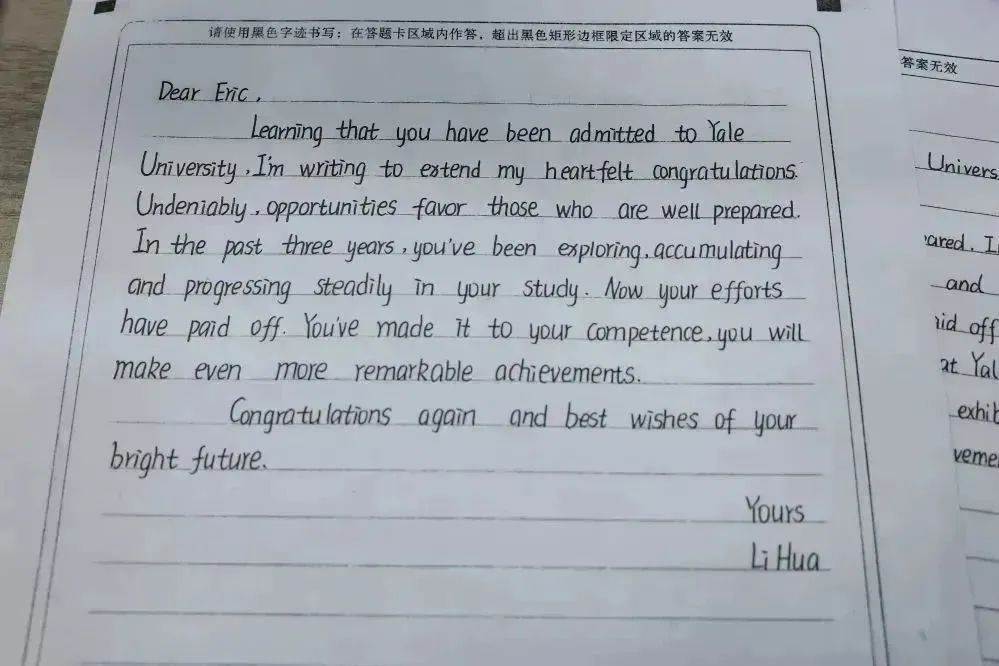 请使用黑色字迹书写：在答题卡区域内作答，超出黑色矩形边框限定区域的答案无效
Dear Eric,
Learning that you have been admitted to Yale
University, I'm writing to extend my heartfelt congratulations.
Undeniably, opportunities favor those who are well prepared.
In the past three years, you've been exploring, accumulating
and progressing steadily in your study. Now your efforts
have paid off. You've made it to your competence, you will
make even more remarkable achievements.
Congratulations again and best wishes of your
bright future.
Yours
Li Hua
答案无效
Univers
ared. I
and
id off
at Yal
exhib
veme